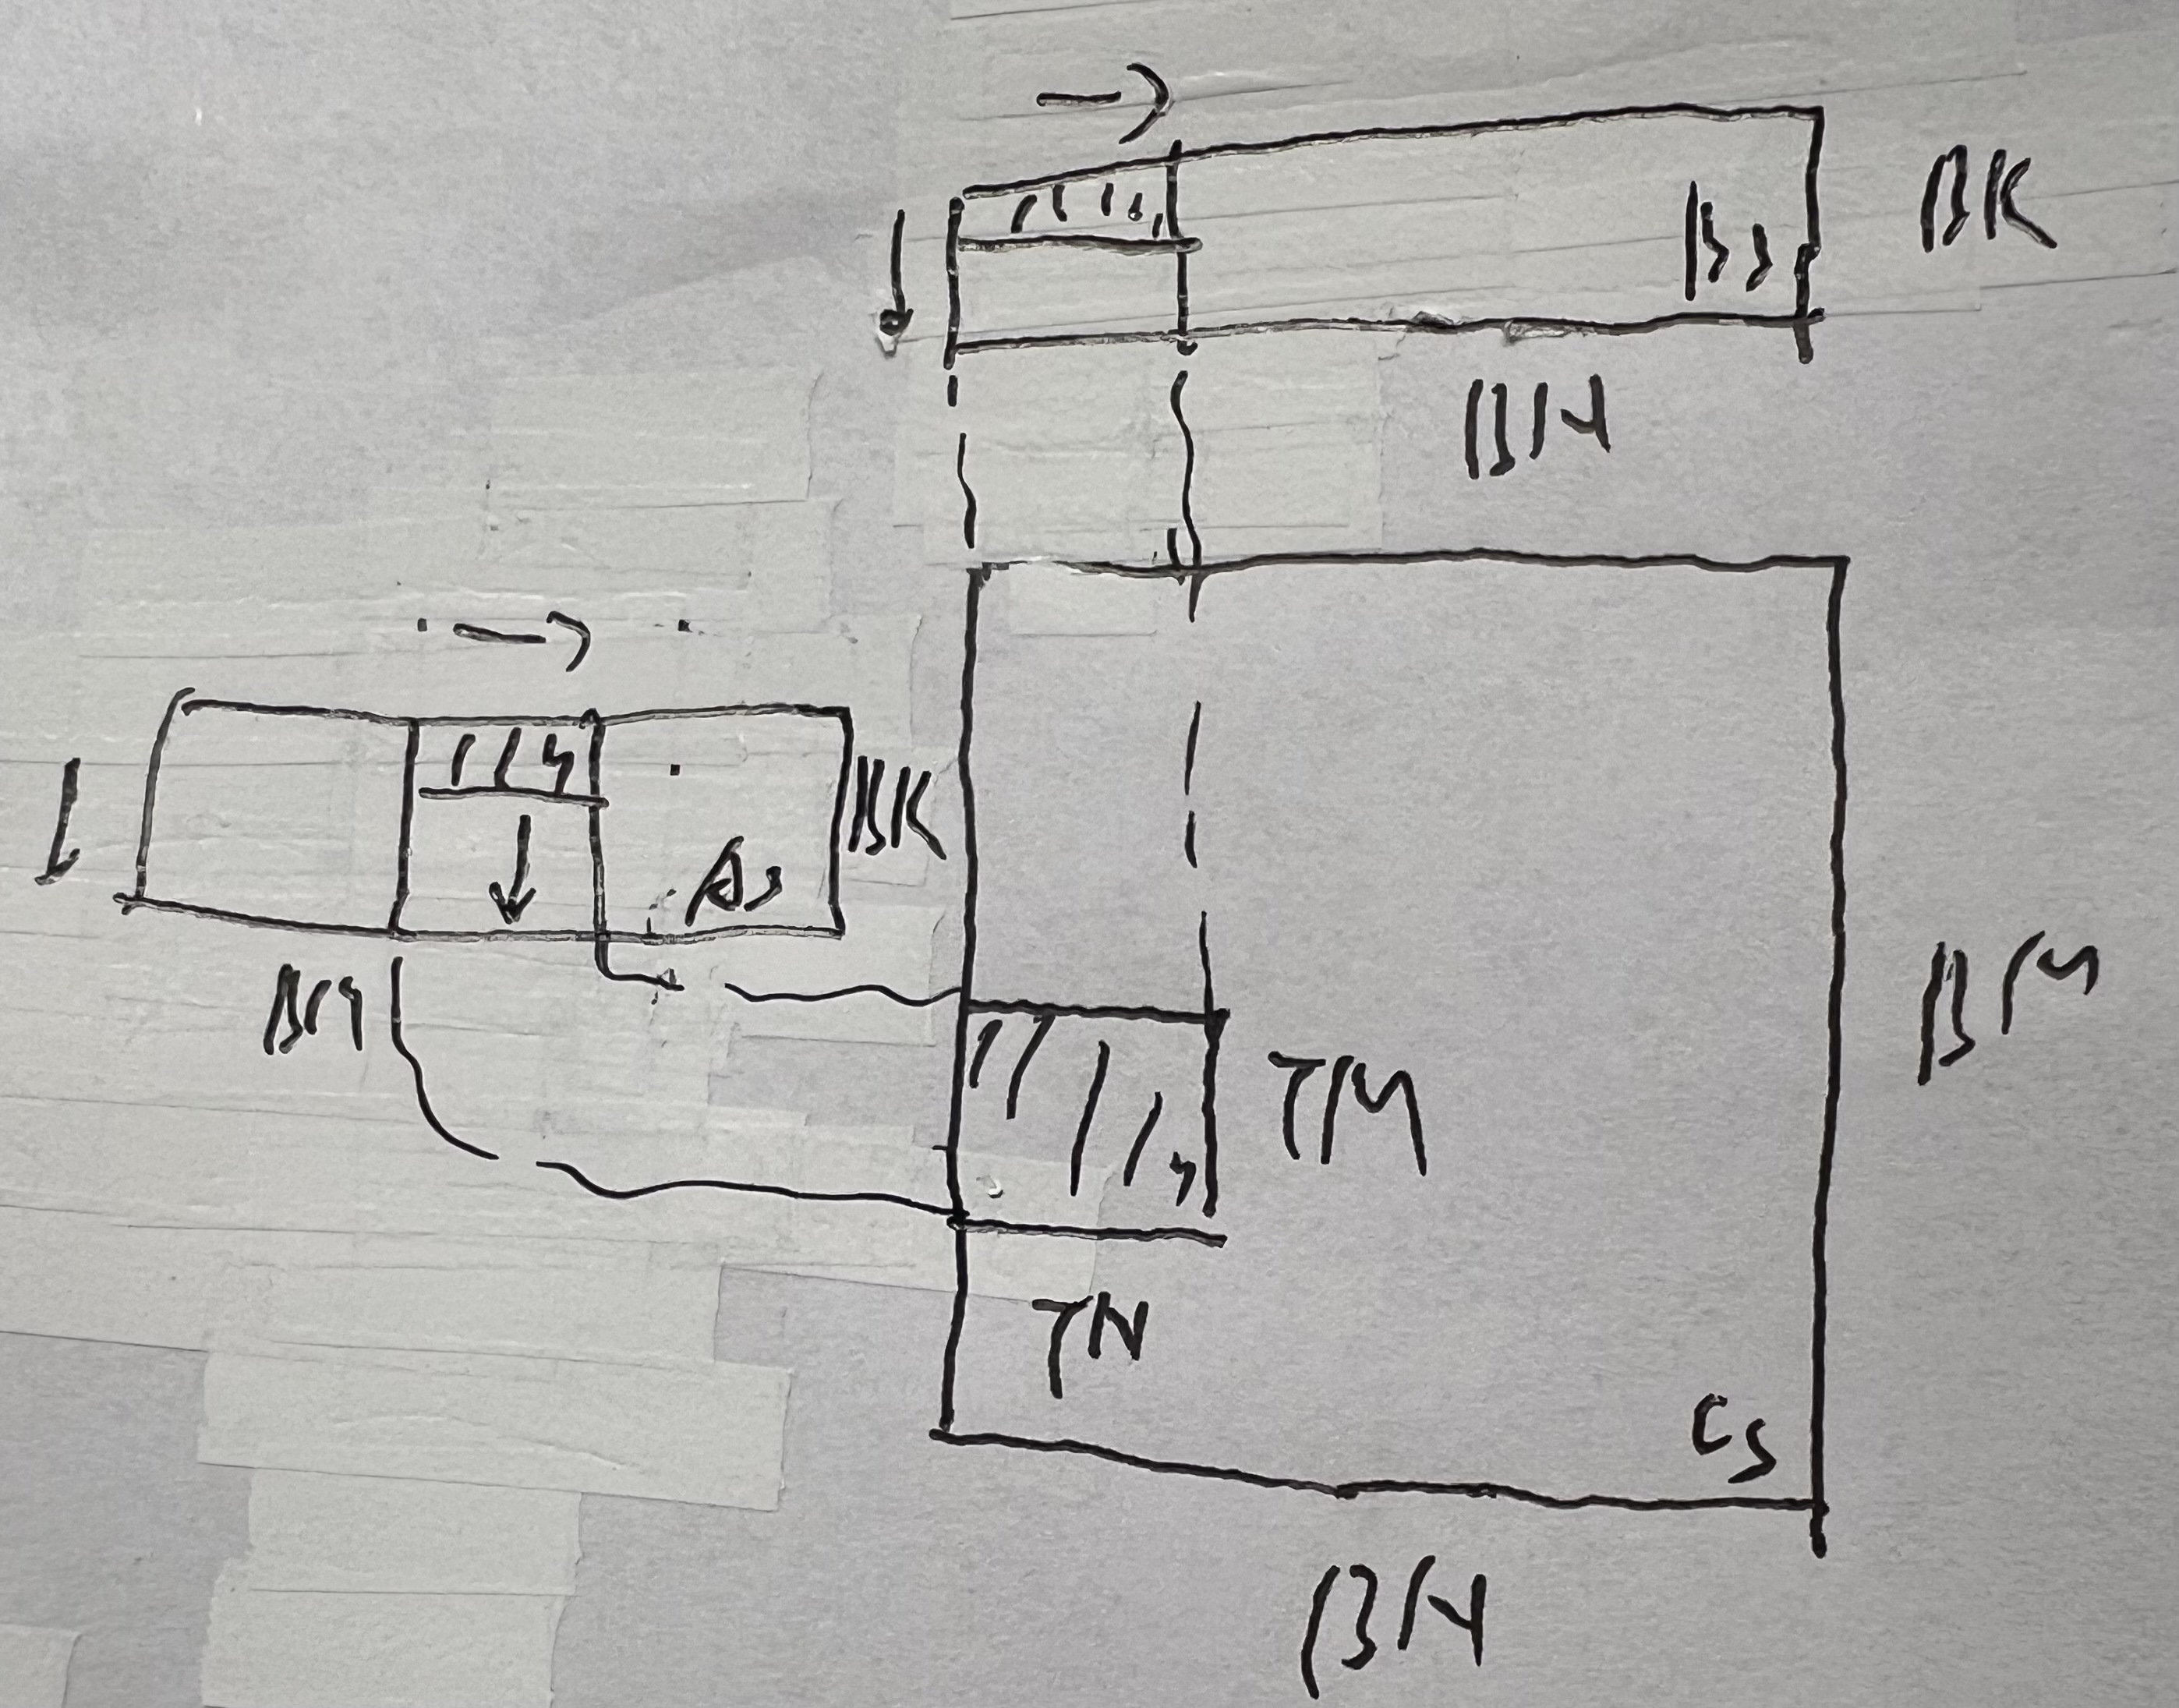 BK
Bs
BN
BK
As
BM
BM
TM
TN
Cs
BN